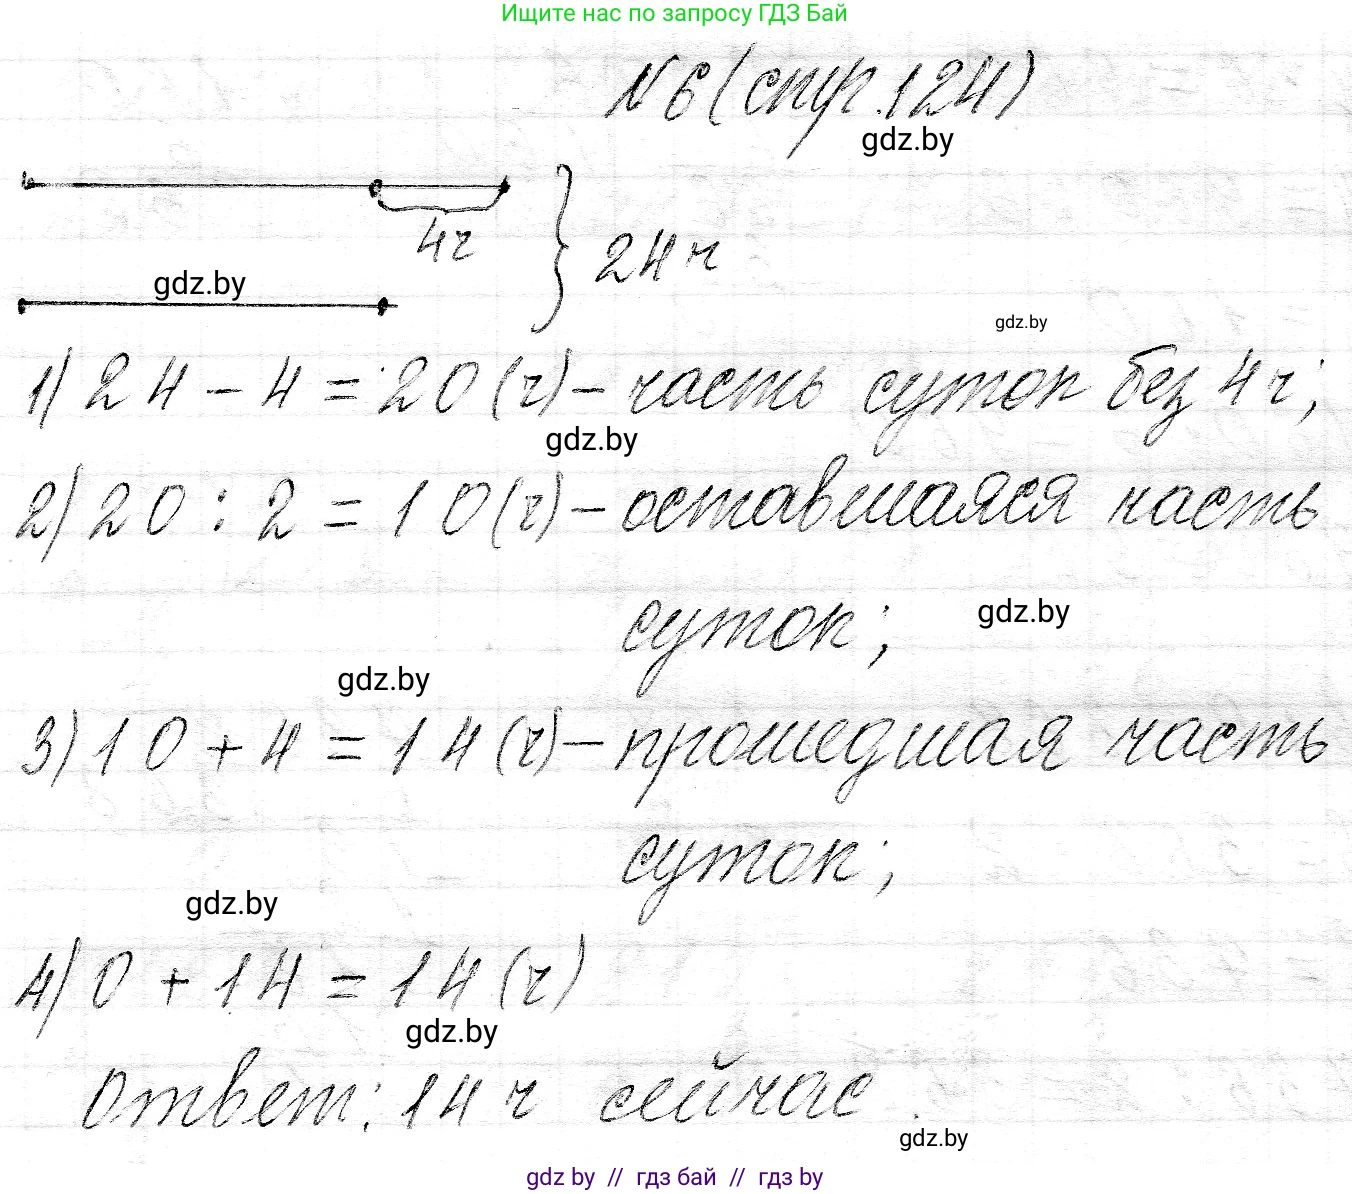 Ищите нас по запросу ГДЗ Бай
№6 (стр. 124)
gdz.by
4ч
24 ч
gdz.by
gdz.by
1) 24 - 4 = 20 (ч) - часть суток без 4 ч;
gdz.by
2) 20 : 2 = 10 (ч) - оставшаяся часть
суток;
gdz.by
gdz.by
3) 10 + 4 = 14 (ч) - прошедшая часть
суток;
gdz.by
4) 0 + 14 = 14 (ч)
gdz.by
Ответ: 14 ч сейчас.
gdz.by
gdz by // гдз бай // гдз by